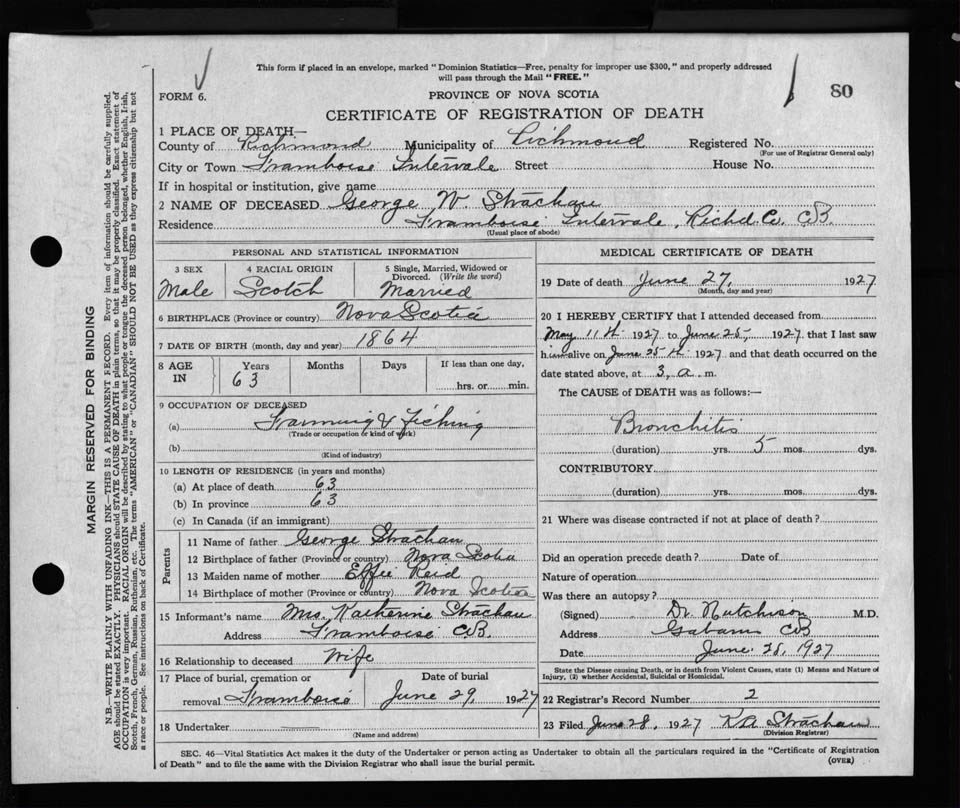 This form if placed in an envelope, marked "Dominion Statistics—Free, penalty for improper use $300," and properly addressed
will pass through the Mail "FREE."
FORM 6.
PROVINCE OF NOVA SCOTIA
80
CERTIFICATE OF REGISTRATION OF DEATH
1 PLACE OF DEATH—
County of Richmond Municipality of Richmond Registered No.
(For use of Registrar General only)
City or Town Framboise Intervale Street House No.
If in hospital or institution, give name
2 NAME OF DECEASED George W Strachan
Residence Framboise Intervale, Richd Co. CB.
(Usual place of abode)
PERSONAL AND STATISTICAL INFORMATION
3 SEX 4 RACIAL ORIGIN 5 Single, Married, Widowed or
Divorced. (Write the word)
Male Scotch Married
6 BIRTHPLACE (Province or country) Nova Scotia
7 DATE OF BIRTH (month, day and year) 1864
8 AGE Years Months Days If less than one day,
IN 63 hrs. or min.
9 OCCUPATION OF DECEASED
(a) Farming & Fiching
(Trade or occupation or kind of work)
(b)
(Kind of industry)
10 LENGTH OF RESIDENCE (in years and months)
(a) At place of death 63
(b) In province 63
(c) In Canada (if an immigrant)
Parents
11 Name of father George Strachan
12 Birthplace of father (Province or country) Nova Scotia
13 Maiden name of mother Effie Reid
14 Birthplace of mother (Province or country) Nova Scotia
15 Informant's name Mrs. Katherine Strachan
Address Framboise CB.
16 Relationship to deceased Wife
17 Place of burial, cremation or Date of burial
removal Framboise June 29, 1927
18 Undertaker
(Name and address)
MEDICAL CERTIFICATE OF DEATH
19 Date of death June 27, 1927
(Month, day and year)
20 I HEREBY CERTIFY that I attended deceased from
May 11th 1927 to June 25, 1927 that I last saw
him alive on June 25th 1927 and that death occurred on the
date stated above, at 3, a. m.
The CAUSE of DEATH was as follows:—
Bronchitis
(duration) yrs. 5 mos. dys.
CONTRIBUTORY
(duration) yrs. mos. dys.
21 Where was disease contracted if not at place of death?
Did an operation precede death? Date of
Nature of operation
Was there an autopsy?
(Signed) Dr. Hutchison M.D.
Address Gabarus CB
Date June 28, 1927
State the Disease causing Death, or in death from Violent Causes, state (1) Means and Nature of
Injury, (2) whether Accidental, Suicidal or Homicidal.
22 Registrar's Record Number 2
23 Filed June 28, 1927 K A Strachan
(Division Registrar)
SEC. 46—Vital Statistics Act makes it the duty of the Undertaker or person acting as Undertaker to obtain all the particulars required in the "Certificate of Registration
of Death" and to file the same with the Division Registrar who shall issue the burial permit.
(OVER)
MARGIN RESERVED FOR BINDING
N.B.—WRITE PLAINLY WITH UNFADING INK—THIS IS A PERMANENT RECORD. Every item of information should be carefully supplied.
AGE should be stated EXACTLY. PHYSICIANS should STATE CAUSE OF DEATH in plain terms, so that it may be properly classified. Exact statement of
OCCUPATION is very important. RACIAL ORIGIN will be described by stating to what people or tongue the deceased person belonged, whether English, Irish,
Scotch, French, German, Russian, Ruthenian, etc. The terms "AMERICAN" or "CANADIAN" SHOULD NOT BE USED as they express citizenship but not
a race or people. See instructions on back of Certificate.